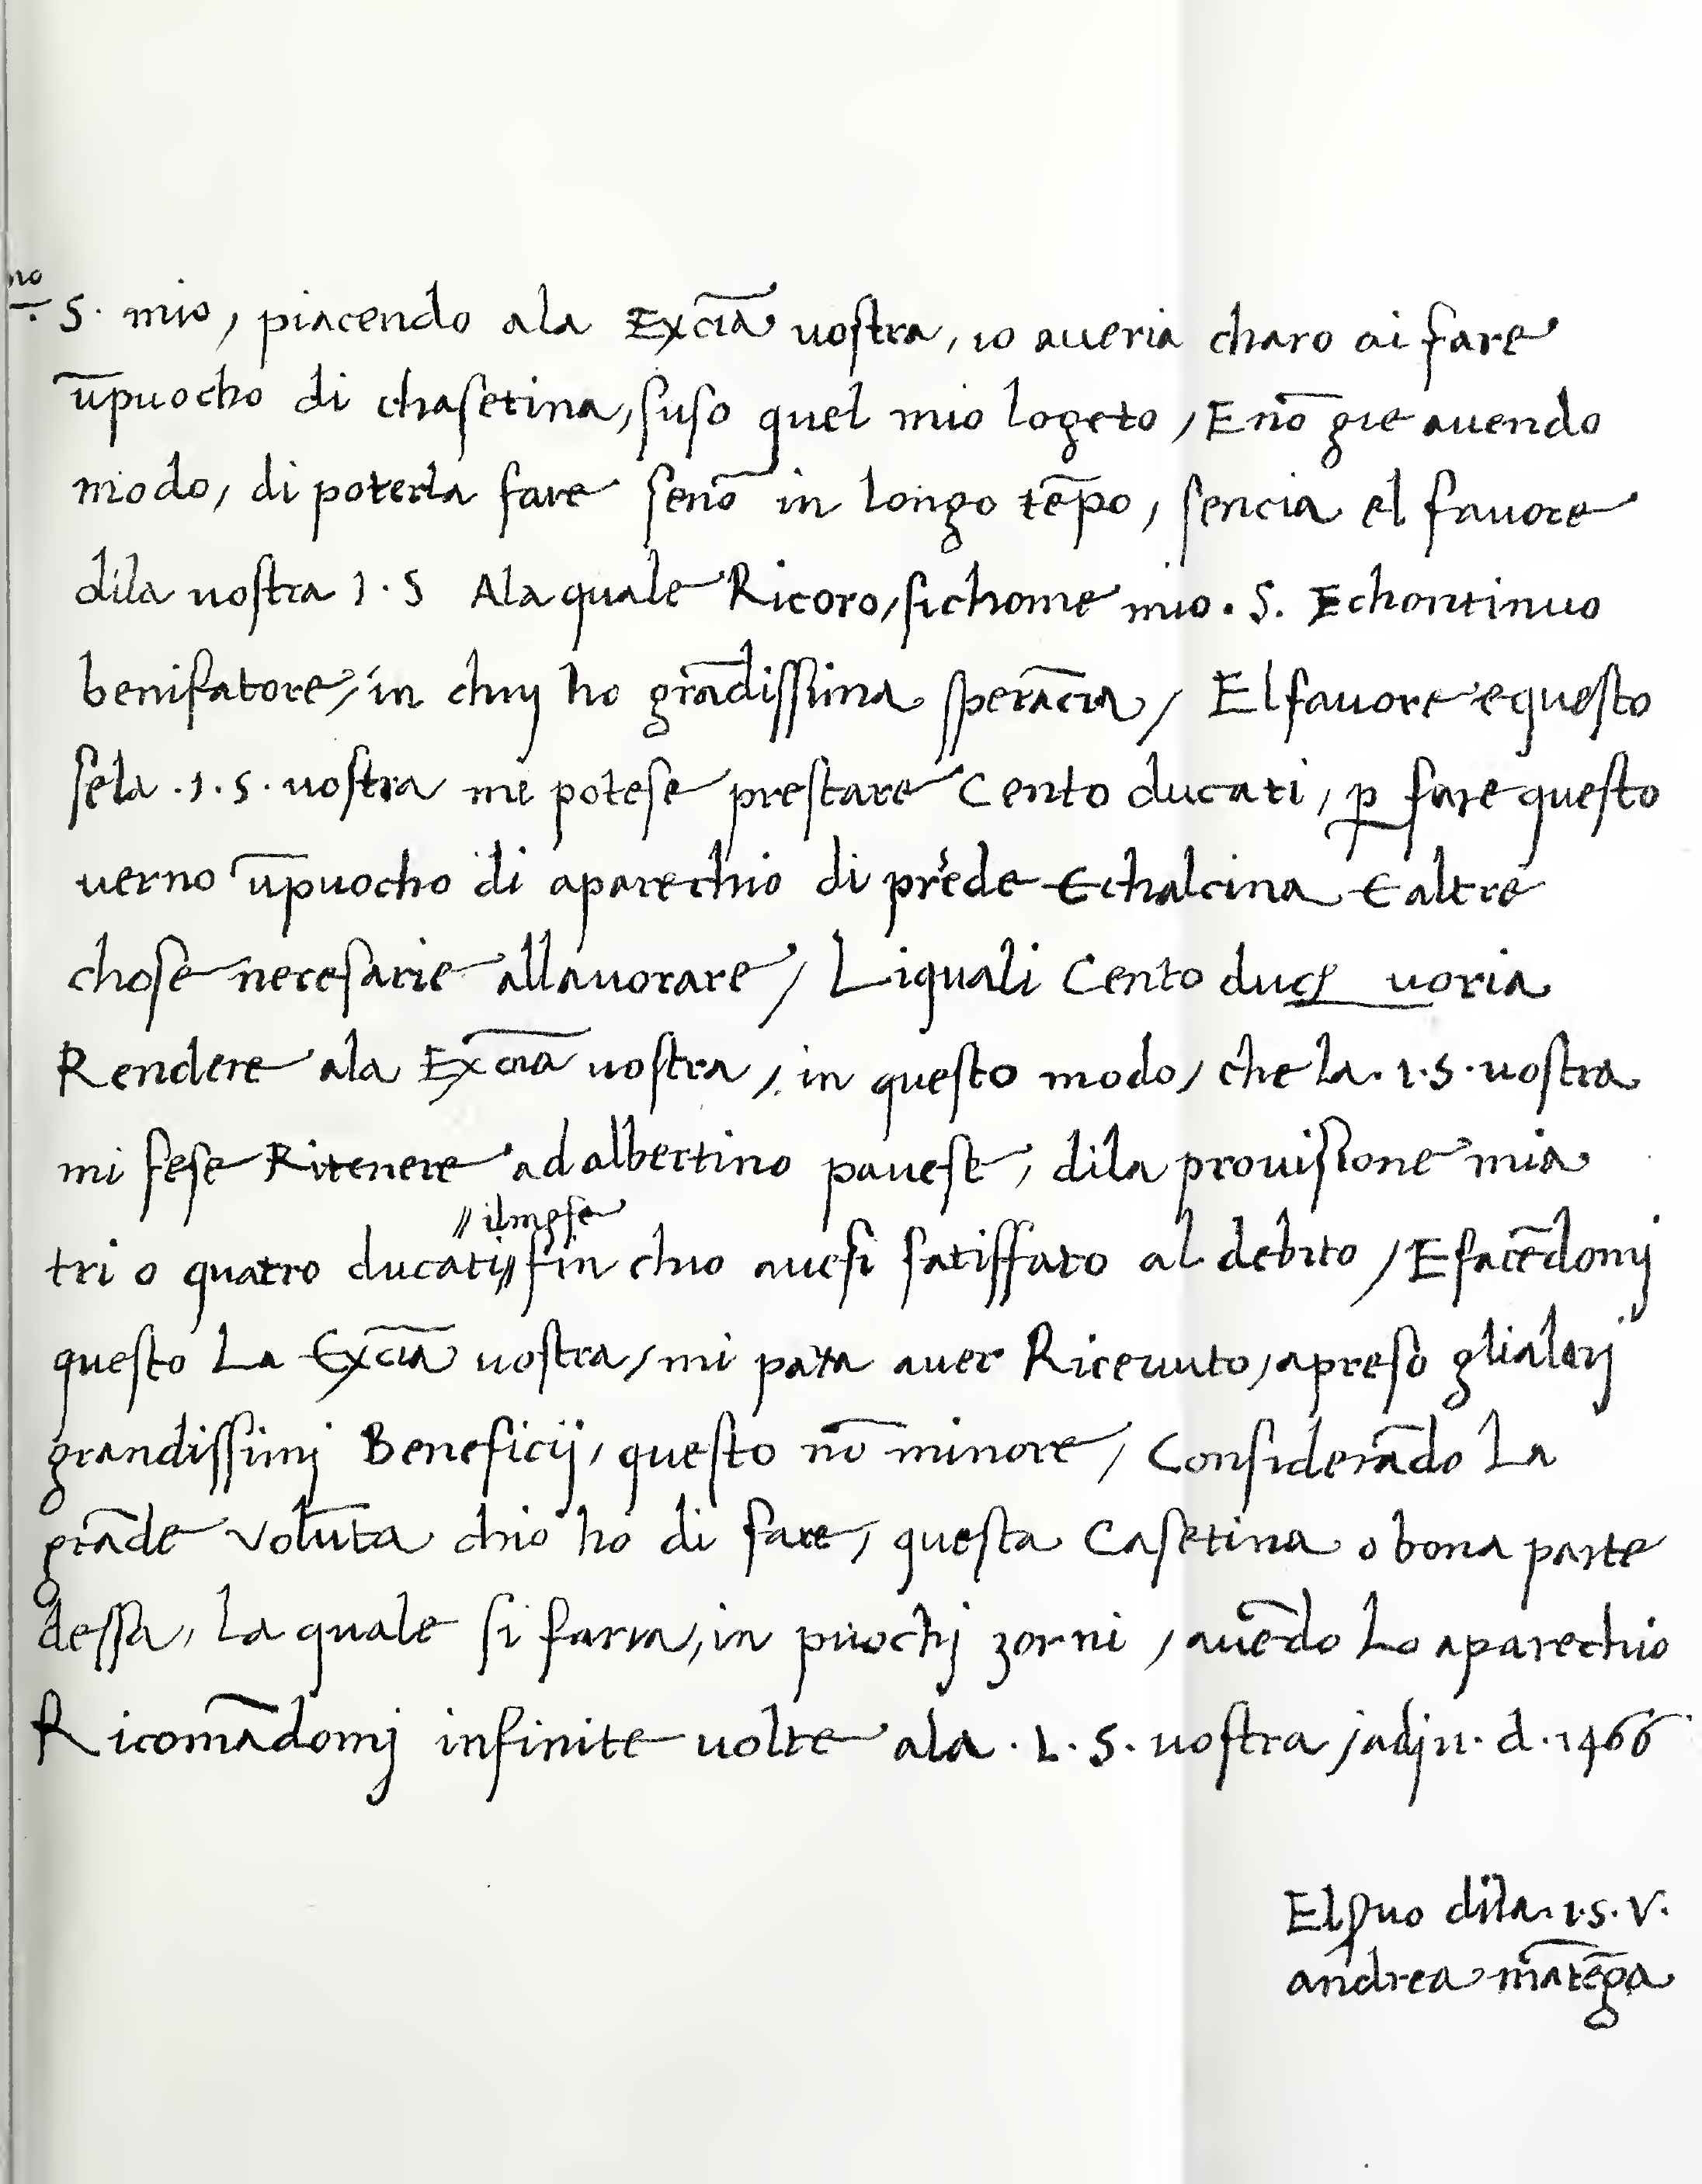 no S. mio, piacendo ala Excīa uostra, io aueria charo di fare
ūpuocho di chasetina, suso quel mio logeto, E nō gie auendo
modo, di poterla fare senō in longo tēpo, sencia el fauore
dila uostra I. S Ala quale Ricoro, sichome mio. S. Echontinuo
benifatore, in chuj ho grādissima sperācia, El fauore e questo
sela .I. S. uostra me potese prestare Cento ducati, ꝑ fare questo
uerno ūpuocho di aparechio di prede E chalcina E altre
chose necesarie allauorare, Li quali Cento duc uoria
Rendere ala Excīa uostra, in questo modo, che la. I. S. uostra
mi fese Ritenere ad albertino pauese, dila prouisione mia
tri o quatro ducati // il mese // fin chio auesi satisffato al debito, E facēdomj
questo La Excīa uostra, mi para auer Riceuuto, apreso glialtrj
grandissimj Beneficij, questo nō minore, Considerādo La
grāde volūta chio ho di fare, questa Casetina o bona parte
dessa, La quale si faria, in puochj zorni, auēdo Lo aparechio
Ricomādomj infinite uolte ala . I. S. uostra, adj 11. d. 1466
El suo dila. I. S. V.
andrea mātēga